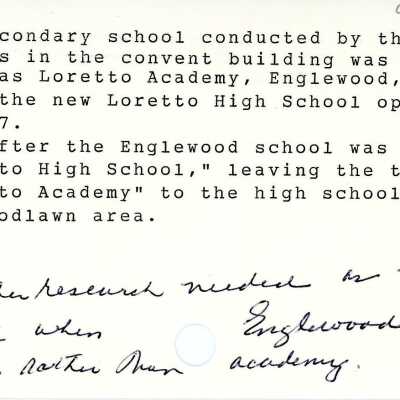 condary school conducted by th
s in the convent building was
as Loretto Academy, Englewood,
the new Loretto High School op
7.
fter the Englewood school was
to High School," leaving the t
to Academy" to the high school
odlawn area.
her research needed as
when Englewood
rather than academy.